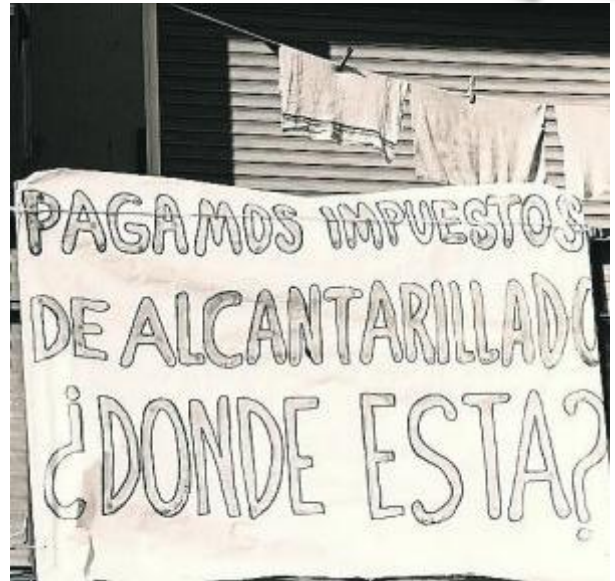 PAGAMOS IMPUESTOS
DE ALCANTARILLADO
¿DONDE ESTA?